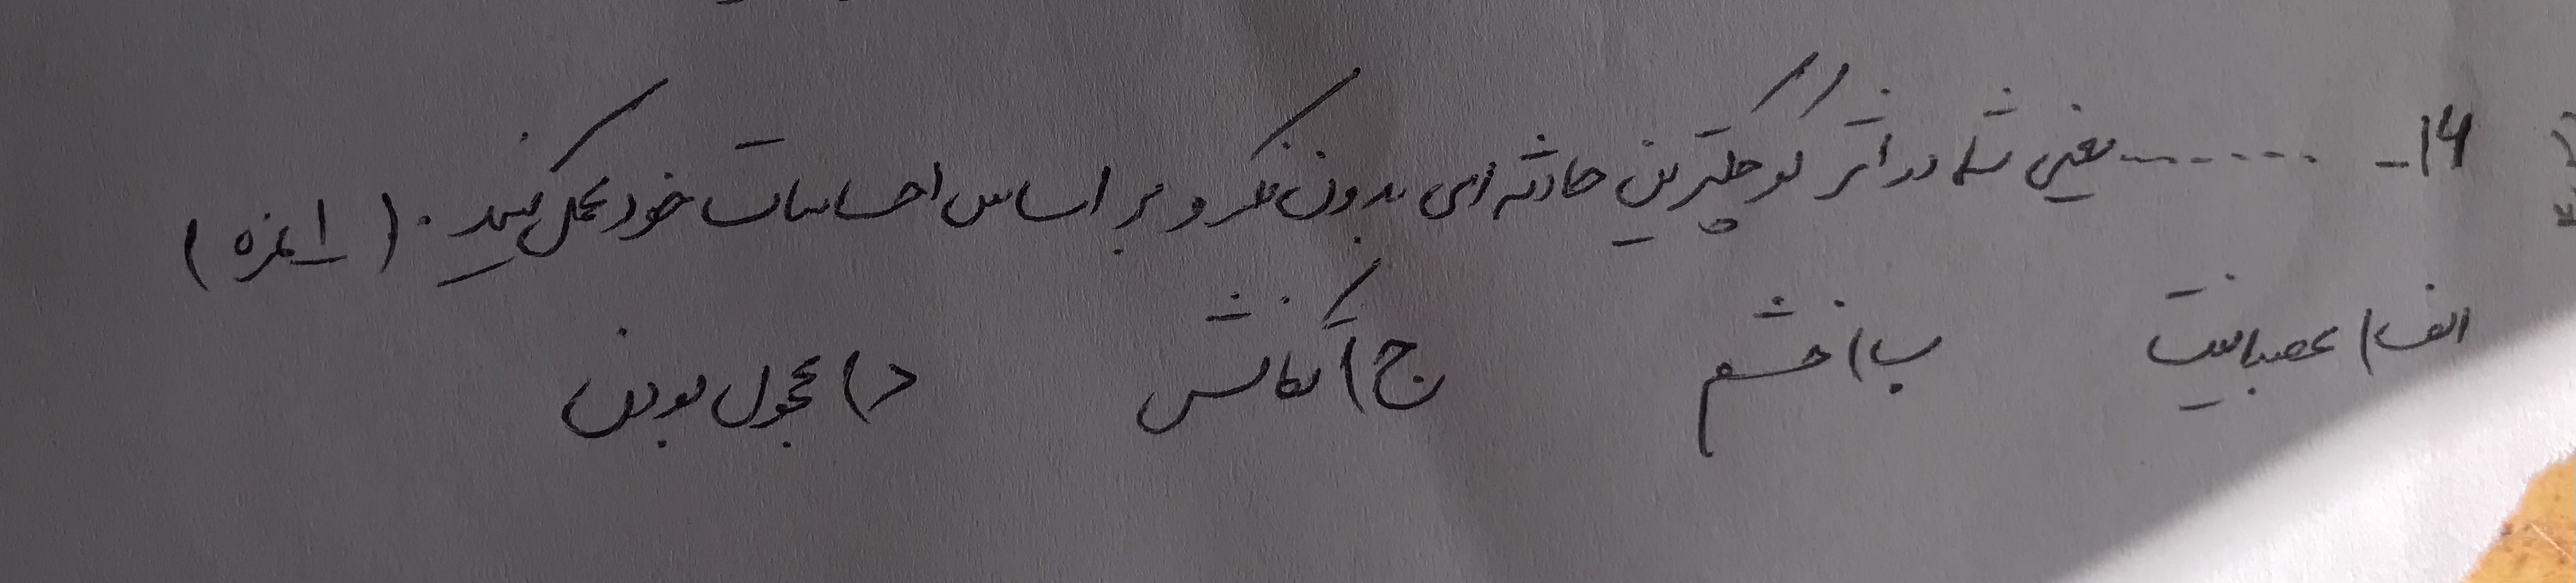 ۱۶- ....... یعنی شما در اثر کوچکترین حادثه ای بدون فکر و بر اساس احساسات خود عمل کنید. (۱ نمره)
الف) عصبانیت ب) خشم ج) تکانش د) عجول بودن